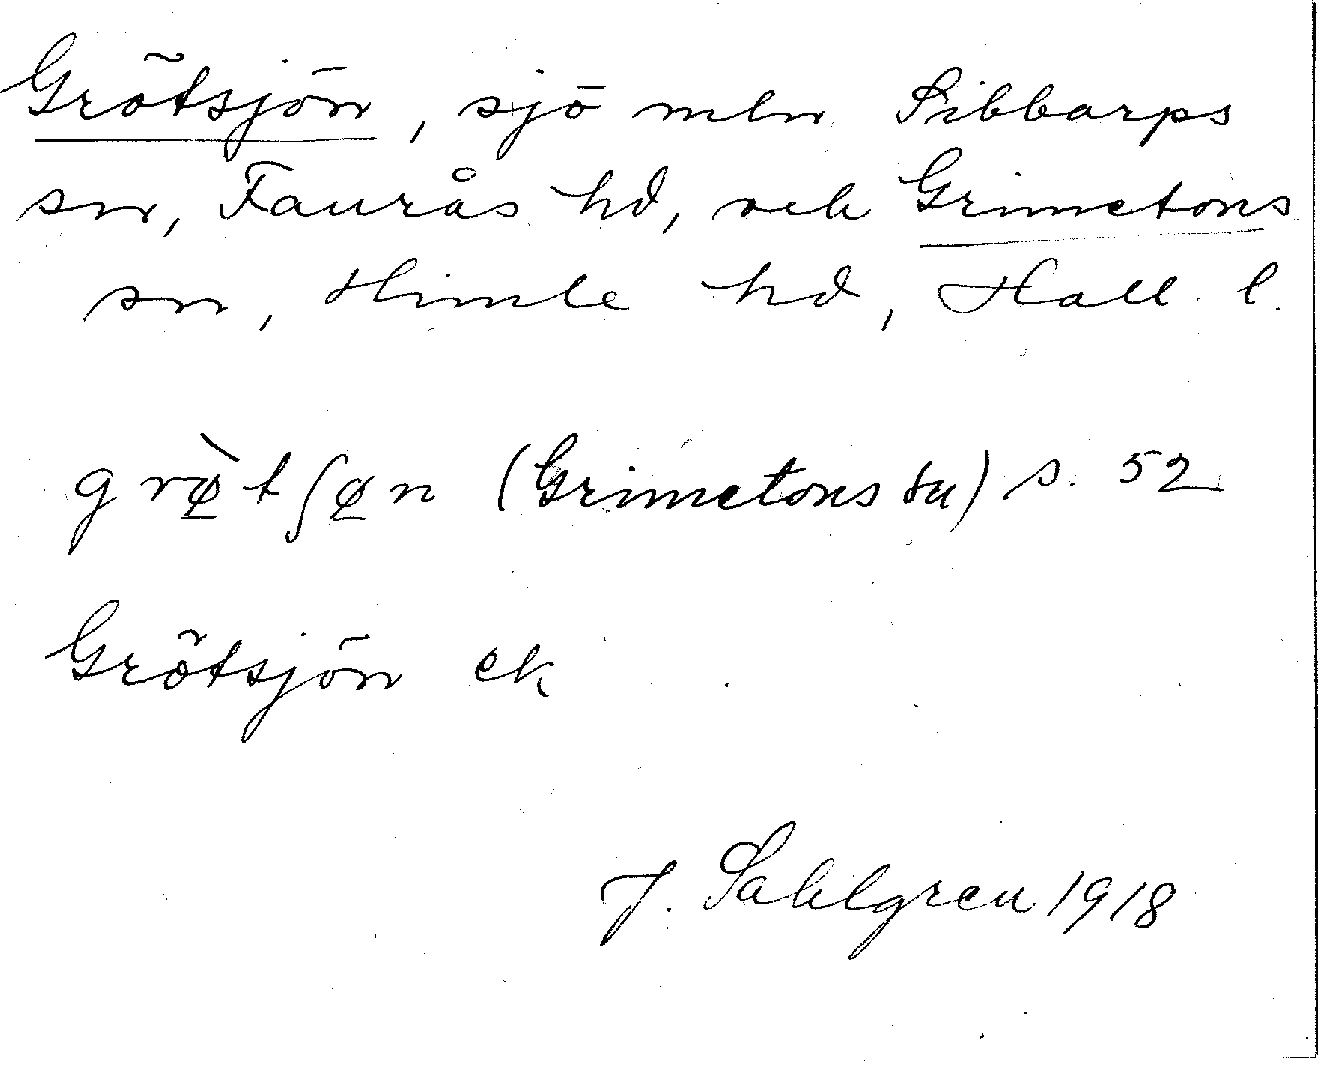 Grötsjön, sjö mln Sibbarps
sn, Faurås hd, och Grimetons
sn, Himle hd, Hall. l.
grø̱̀tʃø̱n (Grimetons sn) s. 52
Grötsjön ek
J. Sahlgren 1918